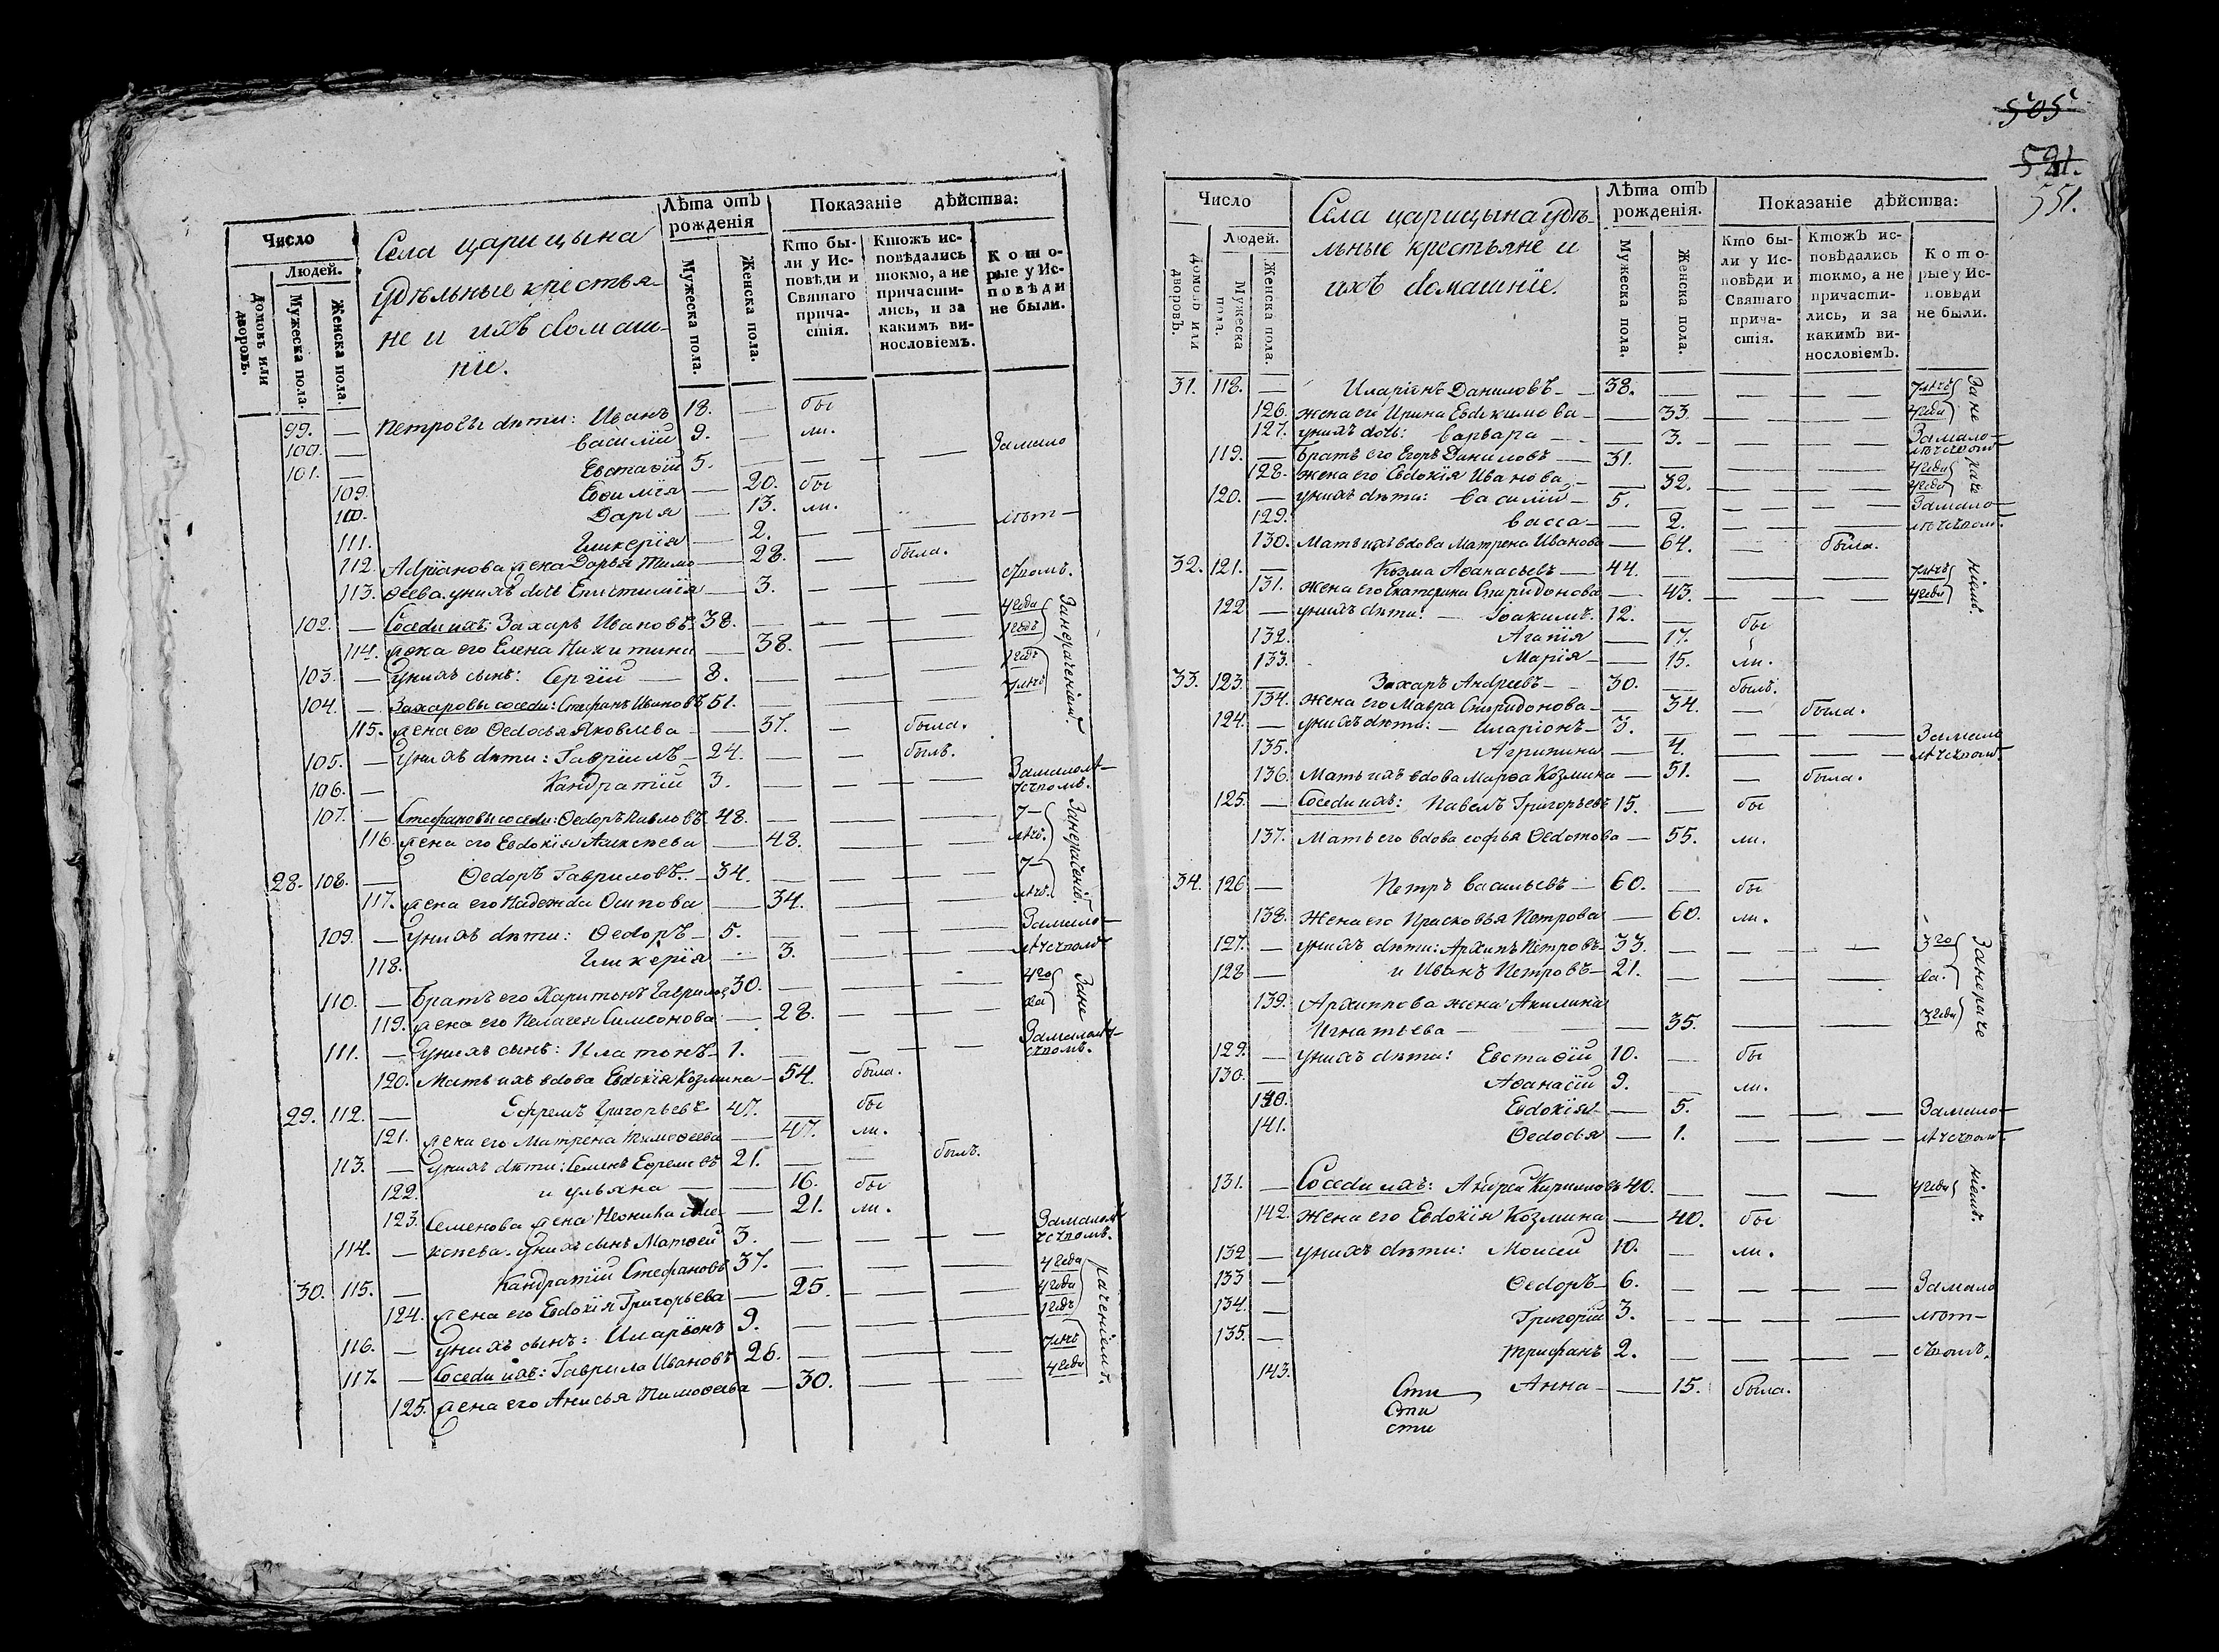 Число
Людей.
домовъ или дворовъ.
Мужеска пола.
Женска пола.
Села царицына
удѣльные крестья-
не и ихъ домаш-
нїе.
Лѣта отъ рожденія
Мужеска пола.
Женска пола.
Показаніе дѣйства:
Кто бы-
ли у Ис-
повѣди и
Святаго
прича-
стія.
Ктожъ ис-
повѣдались
токмо, а не
причасти-
лись, и за
какимъ ви-
нословіемъ.
Кото-
рые у Ис-
повѣди
не были.
99. — Петровы дѣти: Иванъ 18. — бы
100. — василїй 9. — ли.
101. — Евстафїй 5. — — — Замало
109. Евфимїя — 20. бы
110. Дарья — 13. ли.
111. Гликерїя — 2. — — лѣт-
112. Адрїанова жена Дарья Тимо — 28. — была.
113. ѳеева. у нихъ дочь Епистимїя — 3. — — — ством.
102. — Соседи ихъ: Захаръ Ивановъ 38. — — — 4 года
114. жена его Елена Никитина — 38. — — 1 годъ
103. — У нихъ сынъ: Сергїй — 8. — — — 1 годъ
104. — Захаровы соседи: Стефанъ Ивановъ 51. — — — 7 лѣтъ
Занераченїем.
115. жена его Ѳедосья Яковлева — 37. — была.
105. — У нихъ дѣти: Гаврїилъ — 24. — — былъ.
106. — Кандратїй 3. — — — Замалолѣ-
тством.
107. — Стефановы соседи: Ѳедоръ Павловъ 48. — — — 7-
116. жена его Евдокїя Алексѣева — 48. — — лѣтъ.
28. 108. — Ѳедоръ Гавриловъ. — 34. — — — 7-
117. жена его Надежда Осипова — 34. — — лѣтъ.
109. — у нихъ дѣти: Ѳедоръ — 5. — — — Замало-
118. Гликерїя — 3. — — лѣтством
110. — Братъ его Харитонъ Гаврилов 30. — — — 4 го
119. жена его Пелагея Симеонова — 28. — — — да
Зане
111. — У нихъ сынъ: Платонъ — 1. — — — Замалолѣт-
ством.
120. Мать ихъ вдова Евдокїя Козмина — 54. была.
29. 112. — Ефремъ Григорьевъ 47. — бы
121. жена его Матрена Тимоѳеева — 47. ли.
113. — У нихъ дѣти: Семенъ Ефремовъ 21. — — былъ.
122. и ульяна — — 16. бы
123. Семенова жена Неонила Але- — 21. ли.
114. — ксѣева. У нихъ сынъ Матвей 3. — — — Замалолѣ-
тством.
30. 115. — Кандратїй Стефановъ 37. — — — 4 года
124. жена его Евдокїя Григорьева — 25. — — — 4 года
116. — У нихъ сынъ: Иларїонъ 9. — — — 1 годъ
117. — Соседи ихъ: Гаврила Ивановъ 26. — — — 7 лѣтъ
125. жена его Анисья Тимоѳеева — 30. — — — 4 года
раченїем.
505
521.
551.
Число
Людей.
домовъ или дворовъ.
Мужеска пола.
Женска пола.
Села царицына удѣ-
льные крестьяне и
ихъ домашнїе.
Лѣта отъ рожденія.
Мужеска пола.
Женска пола.
Показаніе дѣйства:
Кто бы-
ли у Ис-
повѣди и
Святаго
прича-
стія.
Ктожъ ис-
повѣдались
токмо, а не
причасти-
лись, и за
какимъ ви-
нословіемъ.
Кото-
рые у Ис-
повѣди
не были.
31. 118. — Иларїонъ Даниловъ — 38. — — — 7 лѣтъ
126. жена его Ирина Евдокимова — 33. — — — 4 года
Зане
127. у нихъ дочь: варвара — — 3. — — — Замало-
119. — Братъ его Егоръ Даниловъ — 31. — лѣтством
128. жена его Евдокїя Иванова — — 32. — — — 4 года
4 года
120. — у нихъ дѣти: василїй — 5. — — — Замало-
129. васса — — 2. — — — лѣтством.
130. Мать ихъ вдова Матрена Иванова — 64. — была.
32. 121. — Козма Аѳанасьевъ — 44. — — — 7 лѣтъ
131. жена его Екатерина Спиридонова — 43. — — — 4 года
нїем.
122 — у нихъ дѣти: — Іоакимъ. 12. — бы
132. Агапїя — 17. —
133. Марїя — — 15. ли.
33. 123. — Захаръ Андреевъ — 30. — былъ.
134. жена его Мавра Спиридонова — — 34. — была.
124. — у нихъ дѣти: — иларїонъ — 3. — — — Замало
135. Агрипина — 4. — — — лѣтством-
136. Мать ихъ вдова Марѳа Козмина — 51. — была.
125. — Соседи ихъ: Павелъ Григорьевъ 15. — бы
137. Мать его вдова софья Ѳедотова — 55. ли.
34. 126 — Петръ васильевъ — 60. — бы
138. Жена его Прасковья Петрова — 60. ли.
127. — у нихъ дѣти: Архипъ Петровъ — 33. — — — 3 го
128 — и Иванъ Петровъ — 21. — — — да.
139. Архиппова жена Акилина
Игнатьева — — 35. — — 3 года
Занераче
129. — у нихъ дѣти: Евстафїй 10. — бы
130. — Аѳанасїй 9. — ли.
140. Евдокїя — 5. — — — Замало-
141. Ѳедосья — 1. — — — лѣтством-
131. — Соседи ихъ: Андрей Кирилловъ 40. — — — 4 года
нїем.
142. жена его Евдокїя Козмина — 40. бы
132 — у нихъ дѣти: Моисей 10. — ли.
133 — Ѳедоръ — 6. — — — Замало
134. — Григорїй 3. — — — лѣт-
135. — Трифанъ 2. — — — ством.
143. Анна — — 15. была.
Сти
Сти
сти